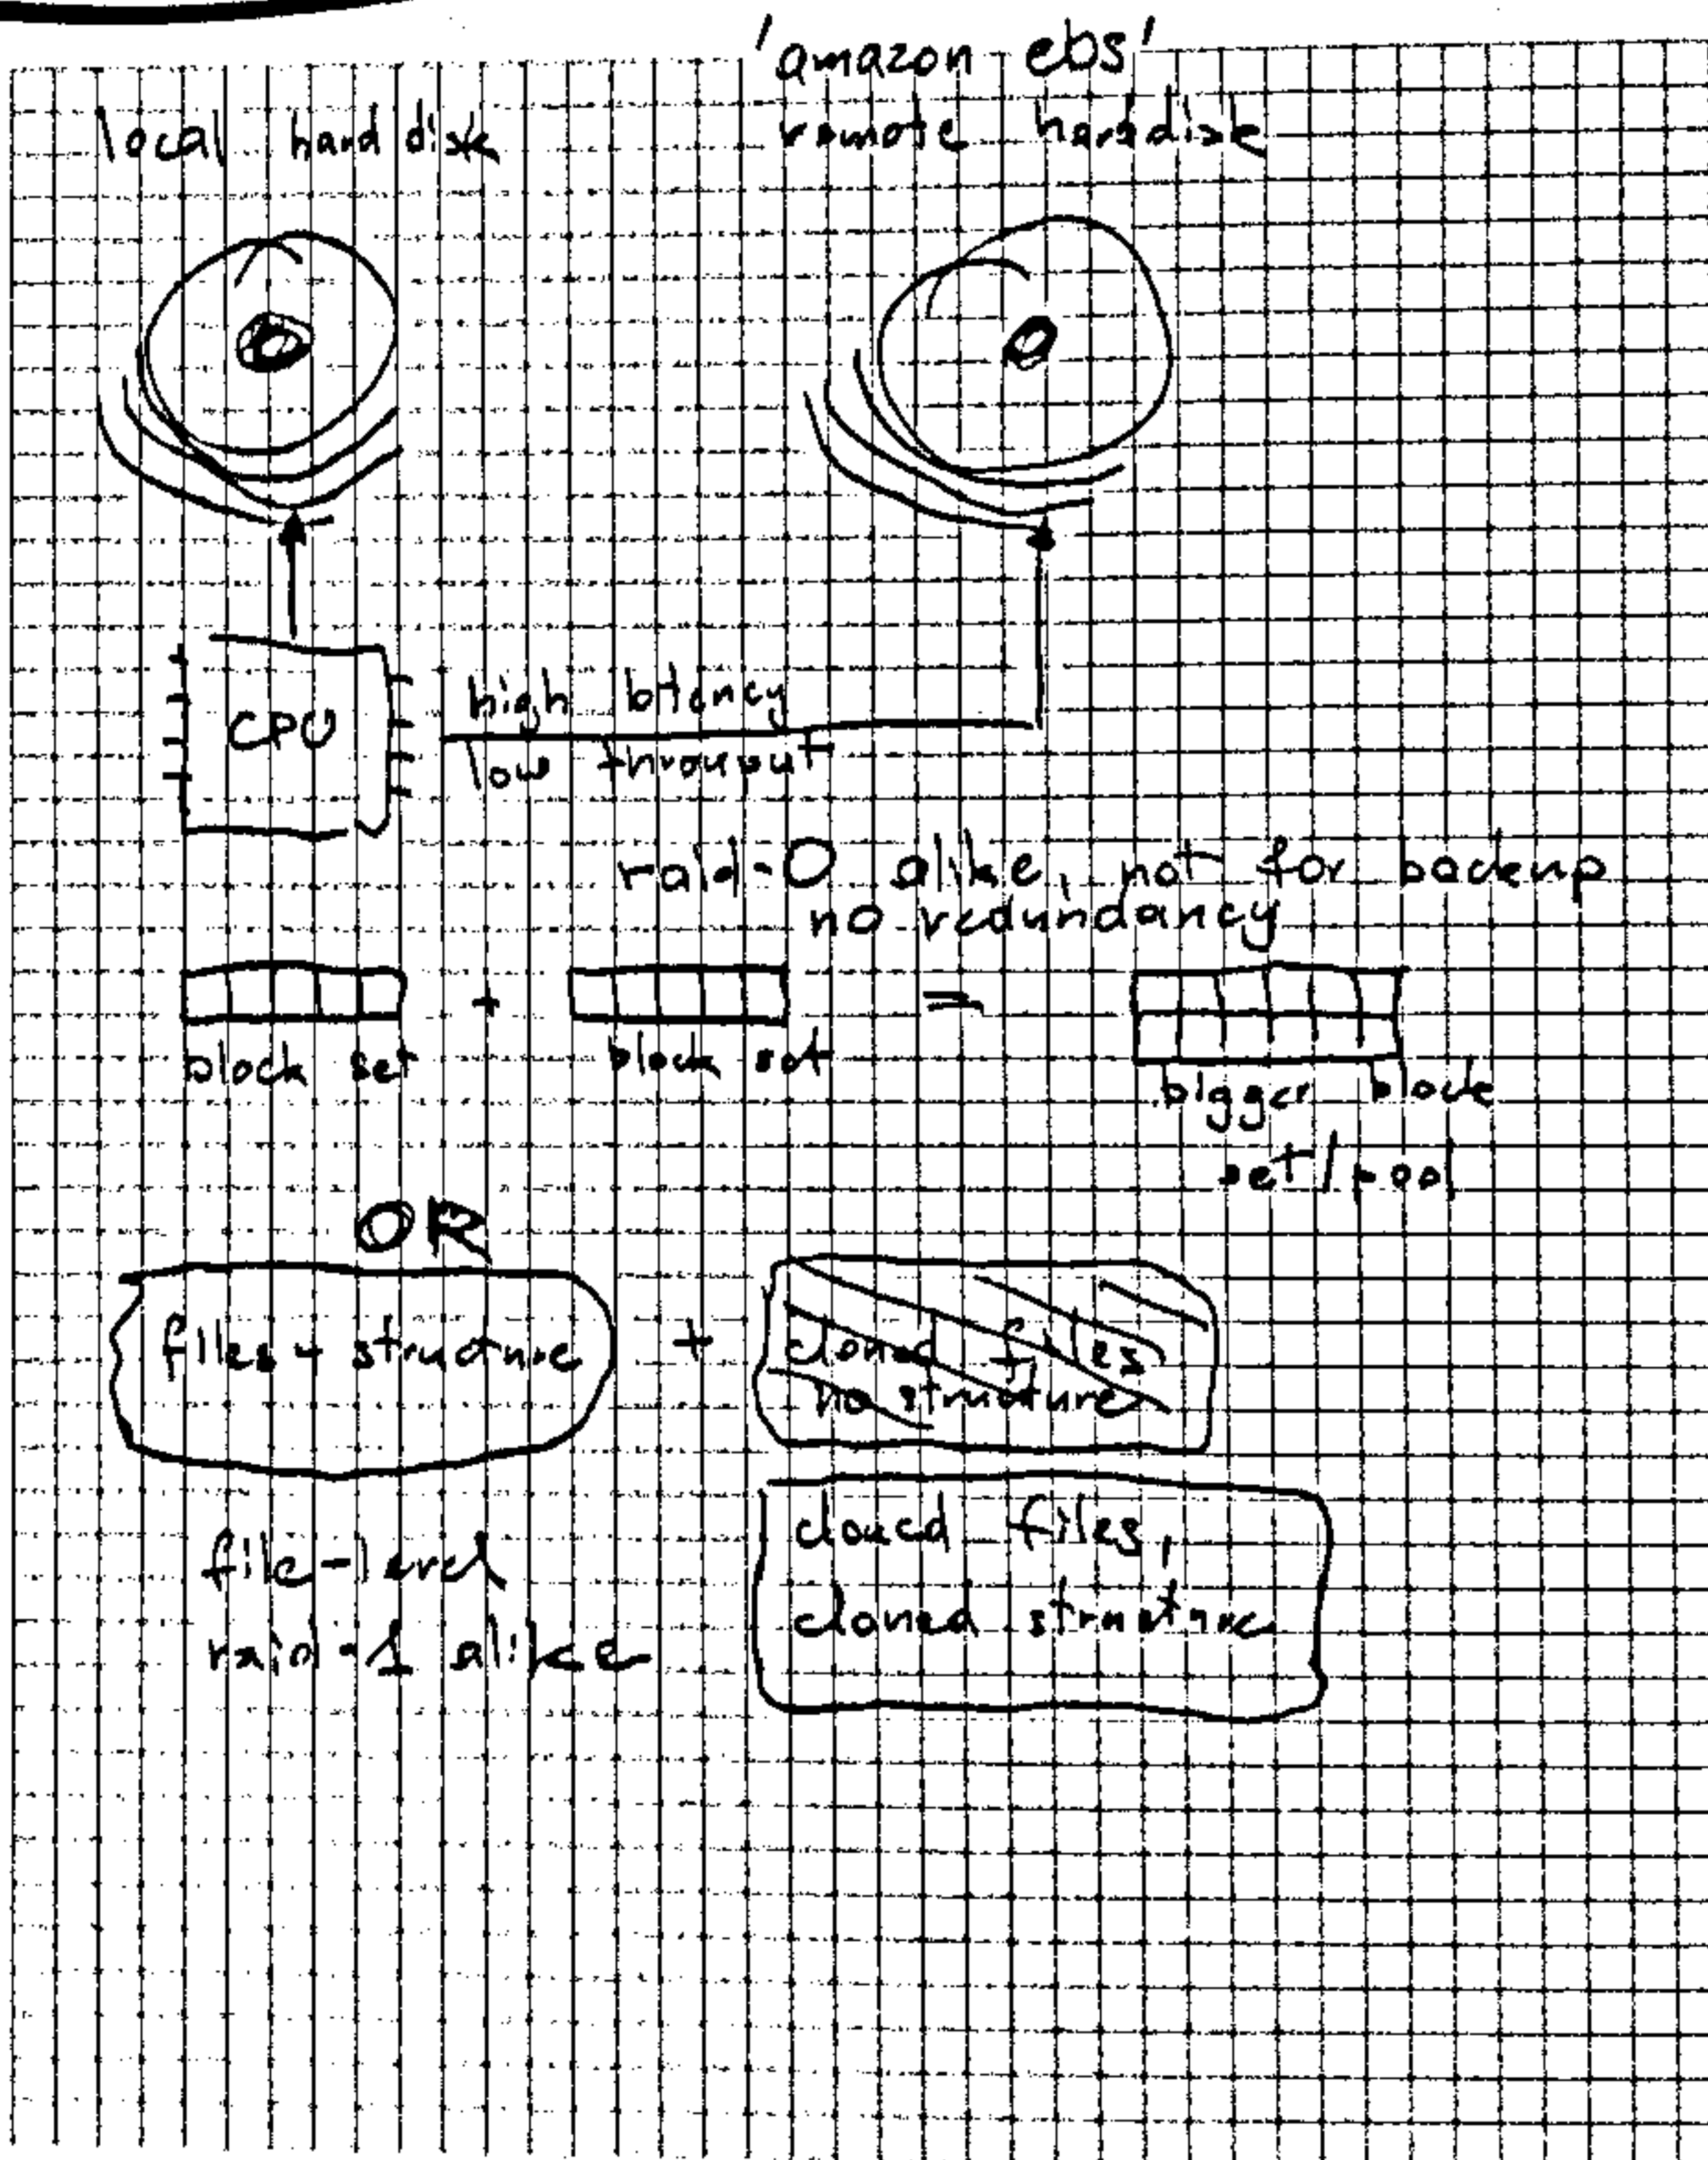 'amazon ebs'
local hard disk
remote harddisk
CPU
high latency
low throuput
raid-0 alike, not for backup
no redundancy
+
=
block set
block set
bigger block
set/pool
OR
files + structure
+
cloned files
no structure
cloned files,
cloned structure
file-level
raid-1 alike